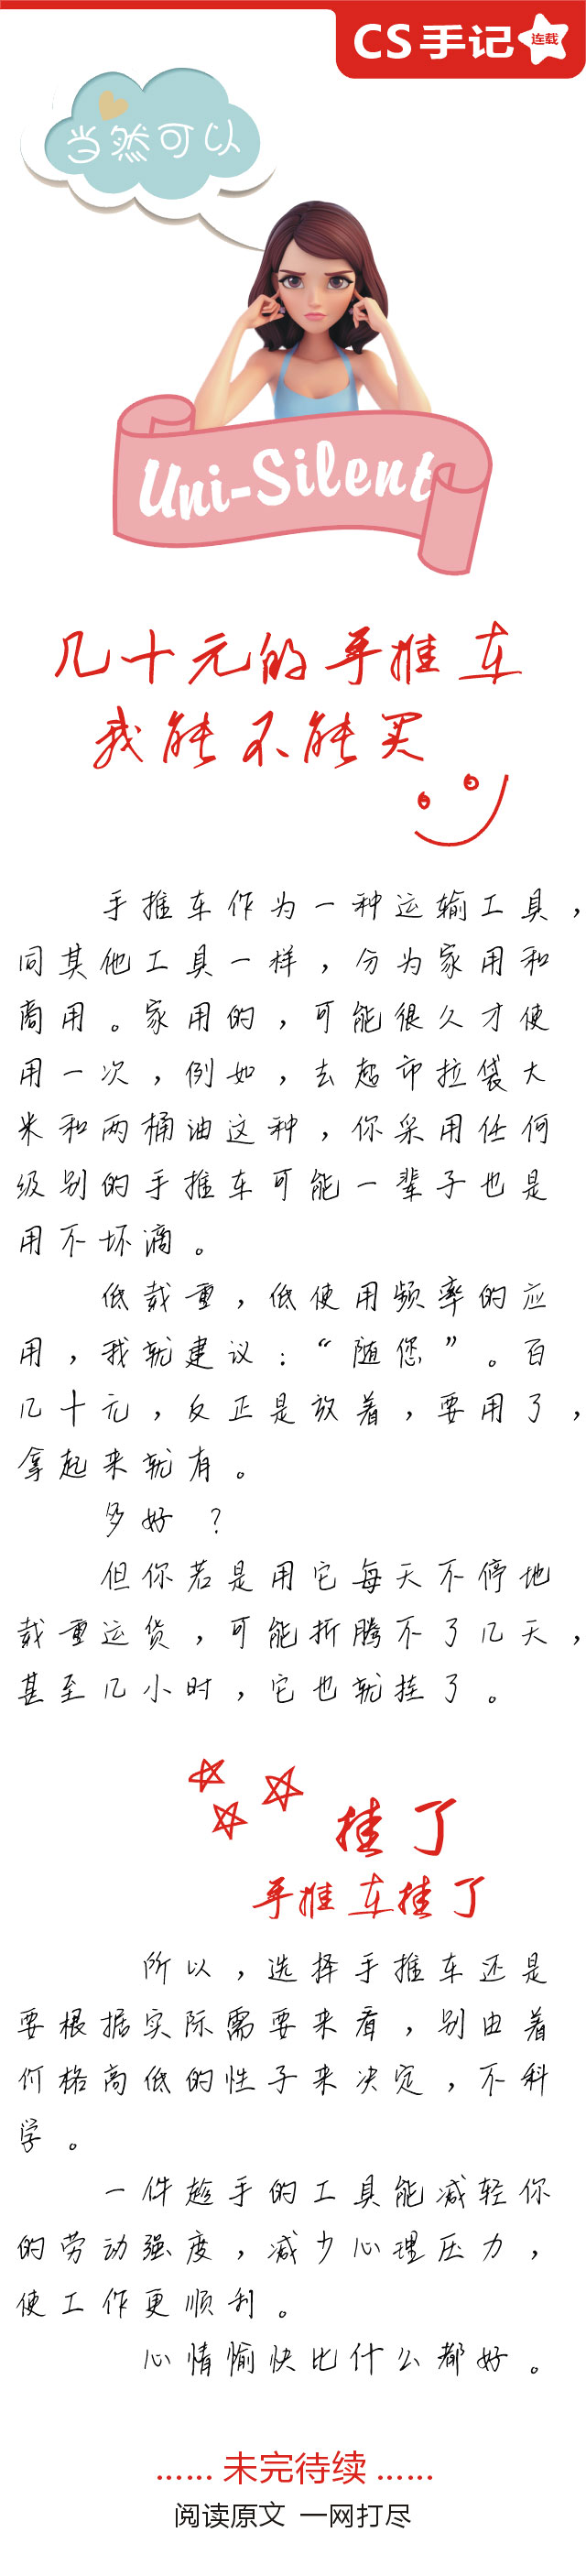 CS手记
连载
当然可以
Uni-Silent
几十元的手推车
我能不能买
手推车作为一种运输工具，
同其他工具一样，分为家用和
商用。家用的，可能很久才使
用一次，例如，去超市拉袋大
米和两桶油这种，你采用任何
级别的手推车可能一辈子也是
用不坏滴。
低载重，低使用频率的应
用，我就建议：“随您”。百
几十元，反正是放着，要用了，
拿起来就有。
多好？
但你若是用它每天不停地
载重运货，可能折腾不了几天，
甚至几小时，它也就挂了。
挂了
手推车挂了
所以，选择手推车还是
要根据实际需要来看，别由着
价格高低的性子来决定，不科
学。
一件趁手的工具能减轻你
的劳动强度，减少心理压力，
使工作更顺利。
心情愉快比什么都好。
……未完待续……
阅读原文 一网打尽